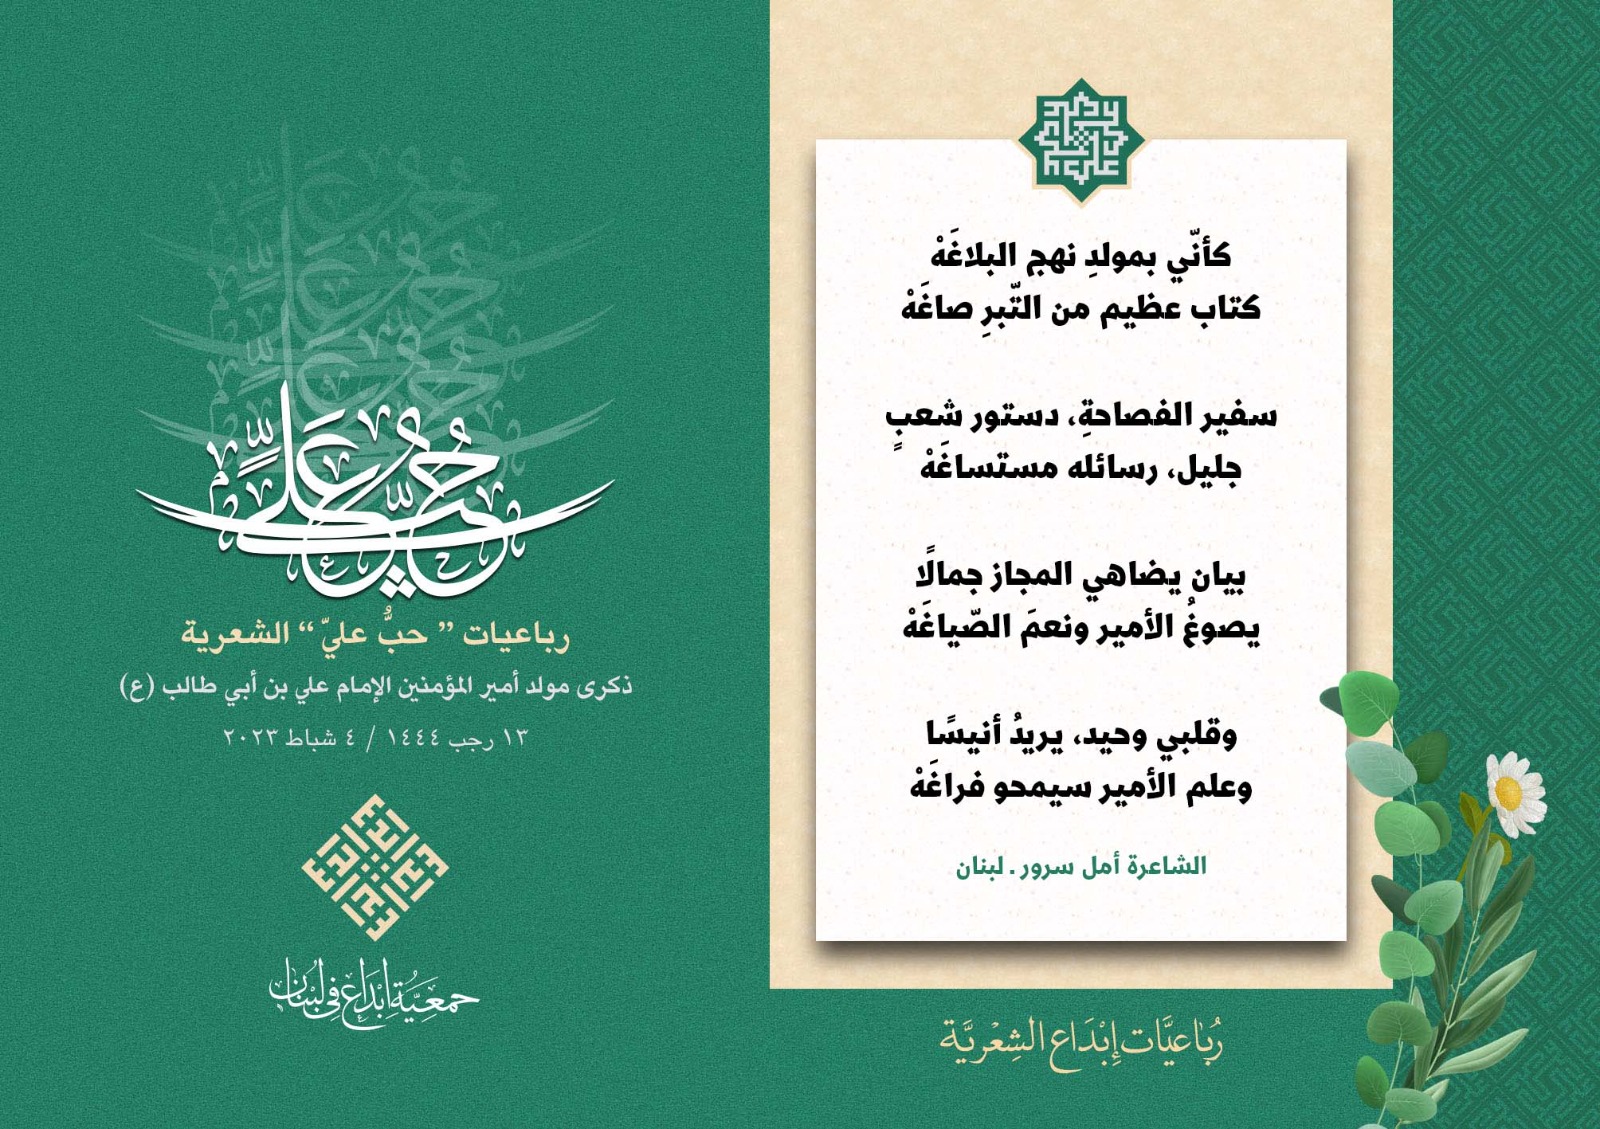 كأنّي بمولدِ نهجِ البلاغَهْ
كتاب عظيم من التّبرِ صاغَهْ
سفير الفصاحةِ، دستور شعبٍ
جليل، رسائله مستساغَهْ
بيان يضاهي المجاز جمالًا
يصوغُ الأمير ونعمَ الصّياغَهْ
وقلبي وحيد، يريدُ أنيسًا
وعلم الأمير سيمحو فراغَهْ
الشاعرة أمل سرور . لبنان
رُباعيَّات إِبْدَاع الشِعْريَّة
حُبُّ عَلِيٍّ
رباعيات ” حبُّ عليّ “ الشعرية
ذكرى مولد أمير المؤمنين الإمام علي بن أبي طالب (ع)
١٣ رجب ١٤٤٤ / ٤ شباط ٢٠٢٣
جمعِيَّة إبْدَاع في لُبْنان